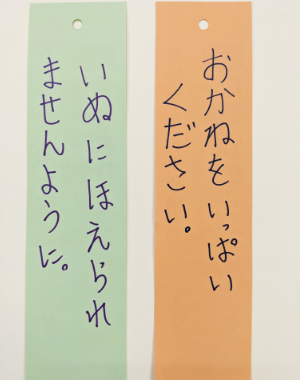 おかねをいっぱい
ください。
いぬにほえられ
ませんように。